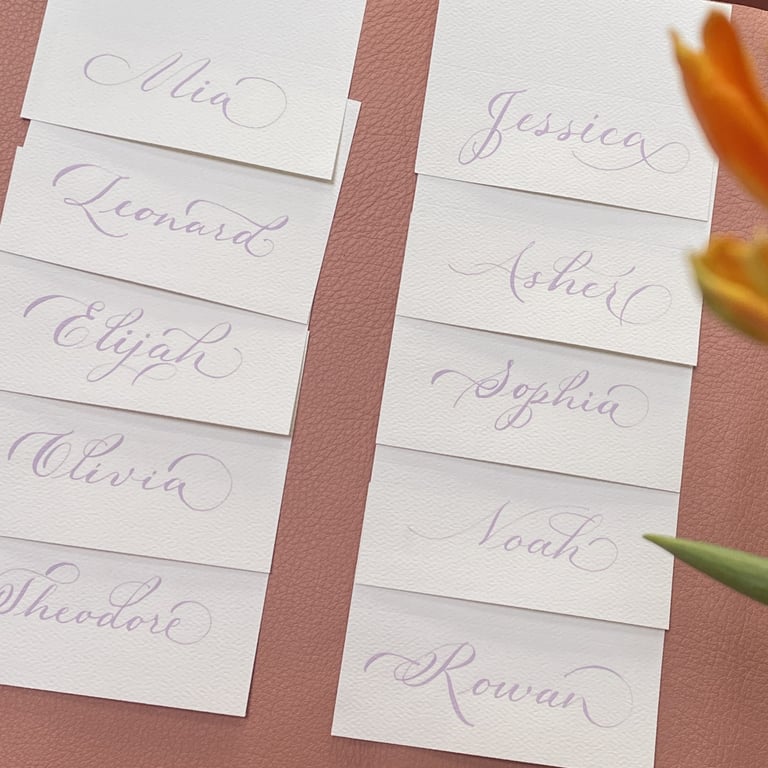 Mia
Leonard
Elijah
Olivia
Theodore
Jessica
Asher
Sophia
Noah
Rowan